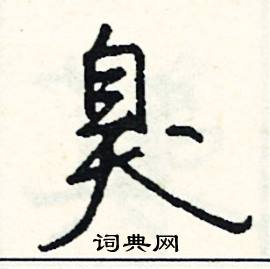 臭
词典网